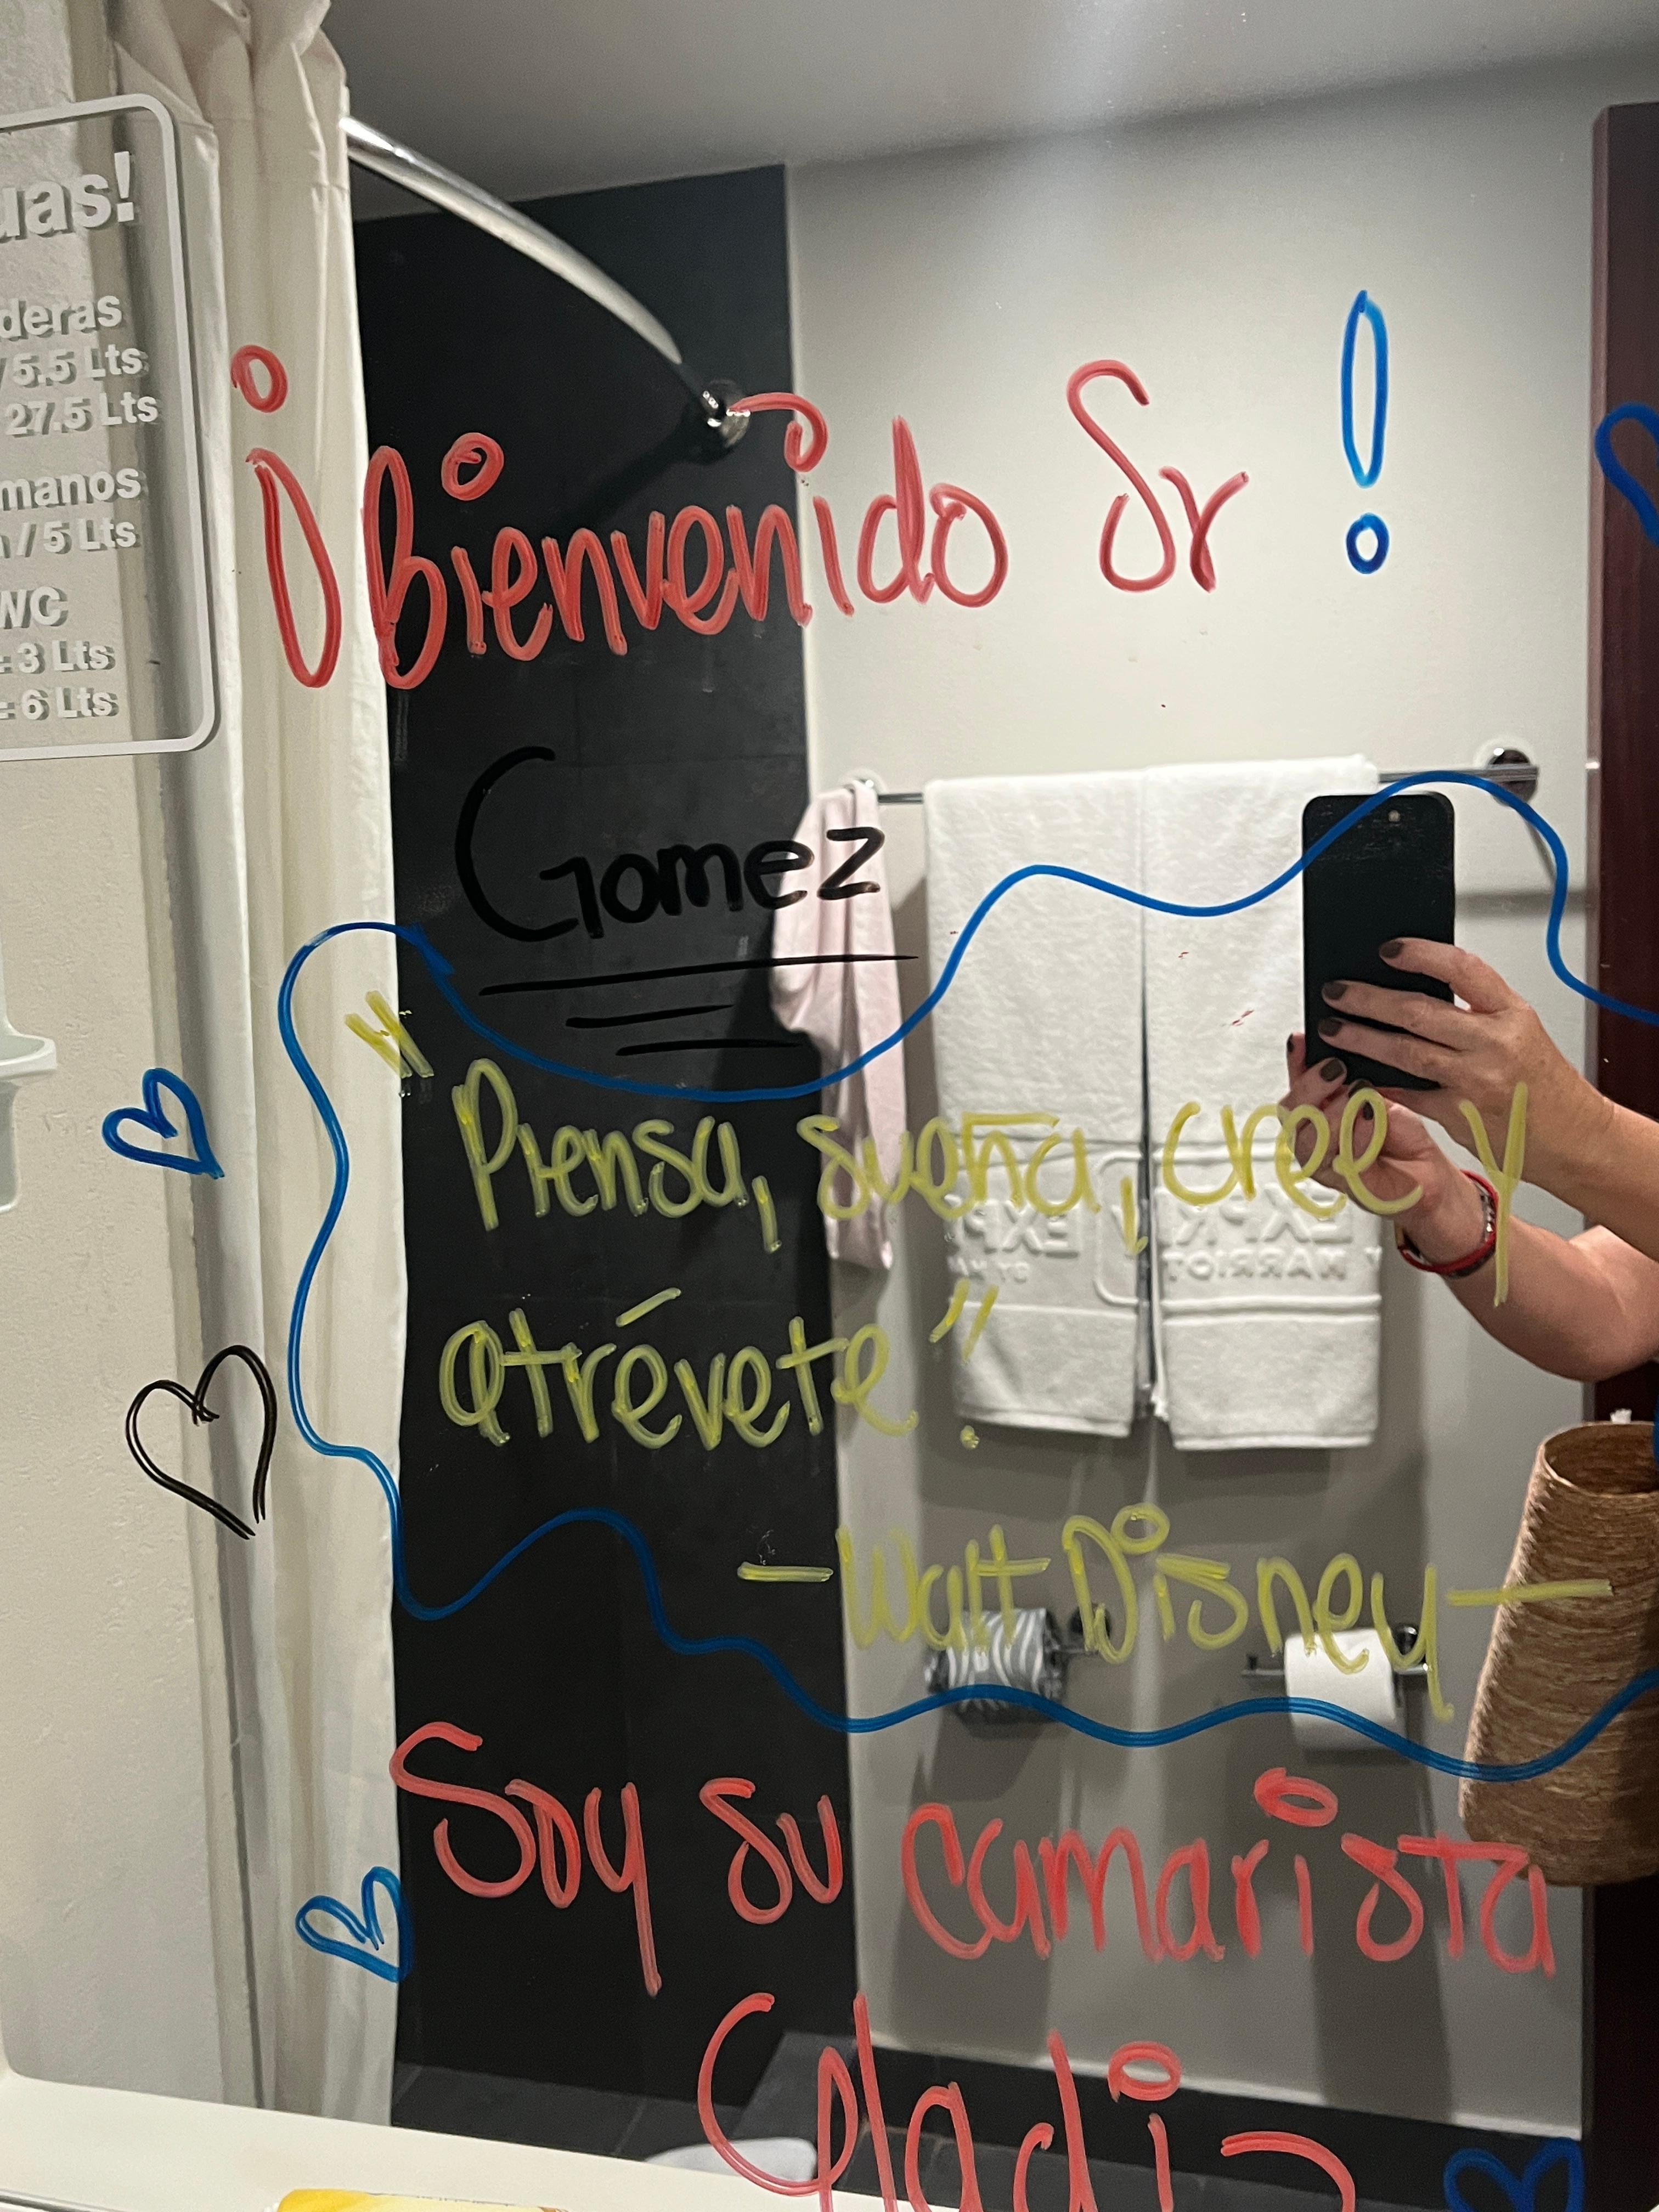 uas!
deras
/ 5.5 Lts
27.5 Lts
manos
/ 5 Lts
WC
= 3 Lts
= 6 Lts
¡Bienvenido Sr!
Gomez
"Piensa, sueña, cree y
atrévete".
-Walt Disney-
Soy su camarista
Gladis